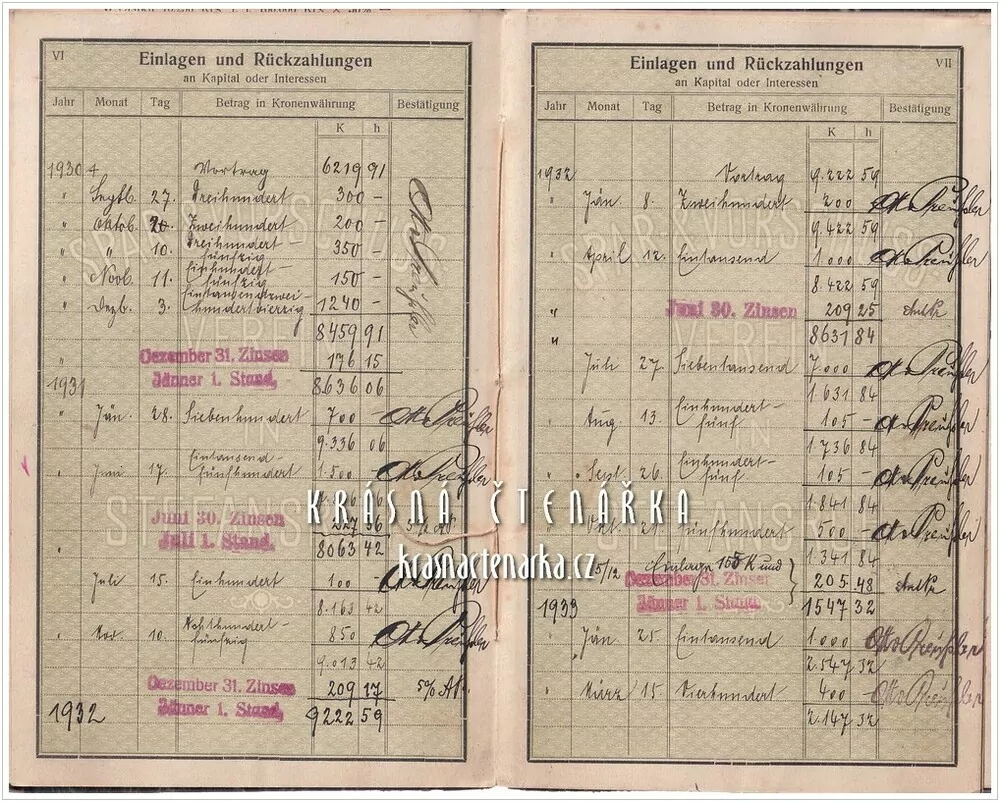 VI
Einlagen und Rückzahlungen
an Kapital oder Interessen
Jahr Monat Tag Betrag in Kronenwährung Bestätigung
K h
1930 Vortrag 6219 91
" Septb. 27. Dreihundert 300 –
" Oktob. Zweihundert 200 –
" " 10. Dreihundert fünfzig 350 –
" Novb. 11. Einhundert fünfzig 150 –
" Dezb. 3. Eintausendzwei hundertvierzig 1240 –
8459 91
Dezember 31. Zinsen 176 15
1931 Jänner 1. Stand, 8636 06
" Jän. 28. Siebenhundert 700 – Otto Preußler
9.336 06
" Juni 17. Eintausend fünfhundert 1.500 – Otto Preußler
Juni 30. Zinsen
Juli 1. Stand, 8063 42
" Juli 15. Einhundert 100 – Otto Preußler
8.163 42
" Nov. 10. Achthundert fünfzig 850 Otto Preußler
9.013 42
Dezember 31. Zinsen 209 17
1932 Jänner 1. Stand, 9222 59
VII
Einlagen und Rückzahlungen
an Kapital oder Interessen
Jahr Monat Tag Betrag in Kronenwährung Bestätigung
K h
1932 Vortrag 9.222 59
" Jän. 8. Zweihundert 200 Otto Preußler
9.422 59
" April 12. Eintausend 1.000 Otto Preußler
8.422 59
" Juni 30. Zinsen 209 25
" 8631 84
Juli 27. Siebentausend 7.000 Otto Preußler
1.631 84
" Aug. 13. Einhundert fünf 105 – Otto Preußler
1.736 84
" Sept. 26. Einhundert fünf 105 Otto Preußler
1.841 84
Okt. 21. Fünfhundert 500 – Otto Preußler
1.341 84
5/12 Einlage und
Dezember 31. Zinsen 205.48
1933 Jänner 1. Stand, 1547 32
" Jän. 25. Eintausend 1.000 Otto Preußler
2.547 32
" März 15. Vierhundert 400 – Otto Preußler
2.147 32
KRÁSNÁ ČTENÁŘKA
krasnactenarka.cz